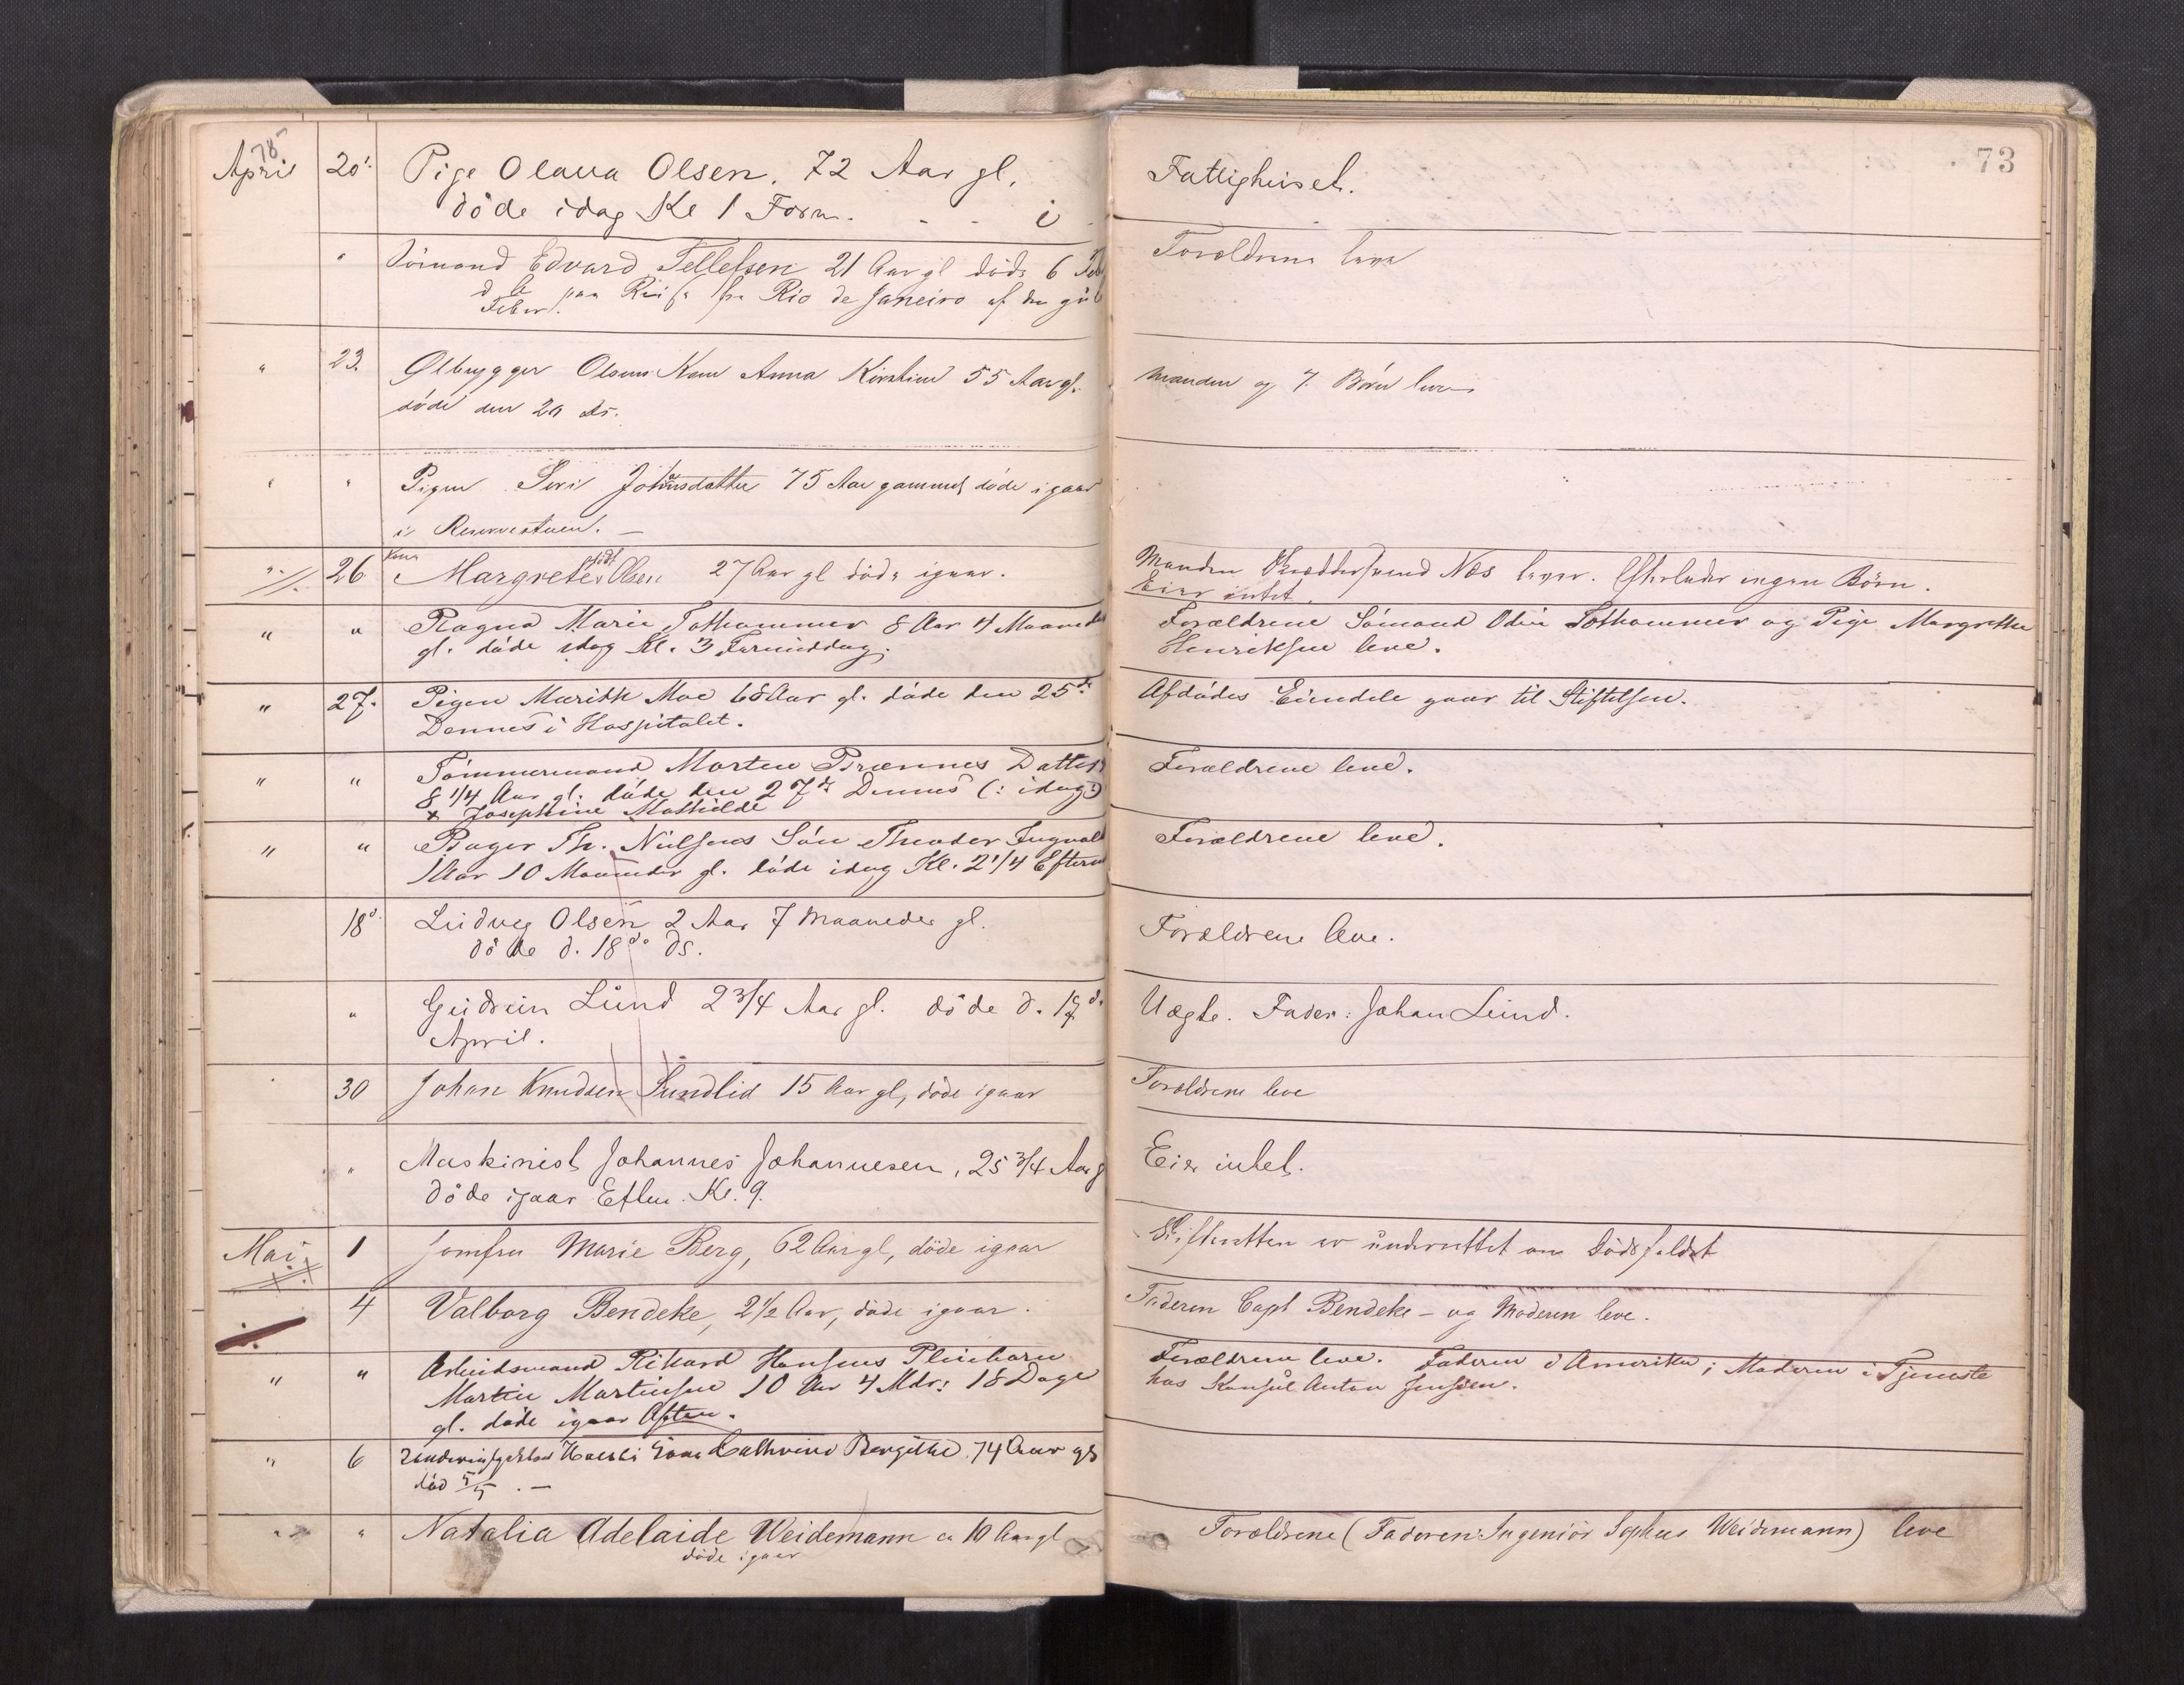 78
April 20. Pige Olava Olsen. 72 Aar gl. Fattighuset. 73
döde idag Kl 1 Form. - - i
" Sömand Edvard Tellefsen 21 Aar gl döde 6 Feb Forældrene leve
paa Reise fra Rio de Janeiro af den gule
Feber.
" 23. Ølbrygger Olsens Kone Anna Kirstine 55 Aar gl. Manden og 7 Börn leve
döde den 20 ds.
" " Pigen Siri Johnsdatter 75 Aar gammel döde igaar
i Reservestuen. —
" 26 Kone Margrete Olsen 27 Aar gl döde igaar. Manden Næs lever. Efterlader ingen Börn.
født
Eier intet.
" " Ragna Marie Tothammer 8 Aar 4 Maaneder Forældrene Sömand Odin Tothammer og Pige Margrethe
gl. döde idag Kl. 3 Formiddag. Henriksen leve.
" 27. Pigen Marithe Moe 68 Aar gl. döde den 25de Afdödes Eiendele gaar til Stiftelsen.
Dennes i Hospitalet.
" " Tömmermand Morten Brænnes Datter x Forældrene leve.
8 1/4 Aar gl. döde den 27de Dennes (: idag :)
x Josephine Mathilde
" " Bager Th. Nielsens Sön Theodor Ingvald Forældrene leve.
1 Aar 10 Maaneder gl. döde idag Kl. 2 1/4 Efterm
18d. Ludvig Olsen 2 Aar 7 Maaneder gl. Forældrene leve.
döde d. 18de ds.
" Gudrun Lund 2 3/4 Aar gl. döde d. 17d. Uægte. Fader: Johan Lund.
April.
30 Johan Knudsen Sundlid 15 Aar gl, döde igaar Forældrene leve
" Maskinist Johannes Johannesen, 25 3/4 Aar g Eier intet.
döde igaar Efterm. Kl. 9.
Mai 1 Jomfru Marie Berg, 62 Aar gl, döde igaar Skifteretten er underrettet om Dödsfaldet
4 Valborg Bendeke, 2 1/2 Aar, döde igaar. Faderen Capt Bendeke - og Moderen leve.
" " Arbeidsmand Rikard Hansens Pleiebarn Forældrene leve. Faderen i Amerika; Moderen i Tjeneste
Martin Martinsen 10 Aar 4 Mdr: 18 Dage hos Konsul Anton Jenssen.
gl. döde igaar Aften.
" 6 Cathrine Bergitte 74 Aar gl
död 5/5. —
" " Natalia Adelaide Weidemann ca 10 Aar gl Forældrene (Faderen: Ingeniör Sophus Weidemann) leve
döde igaar